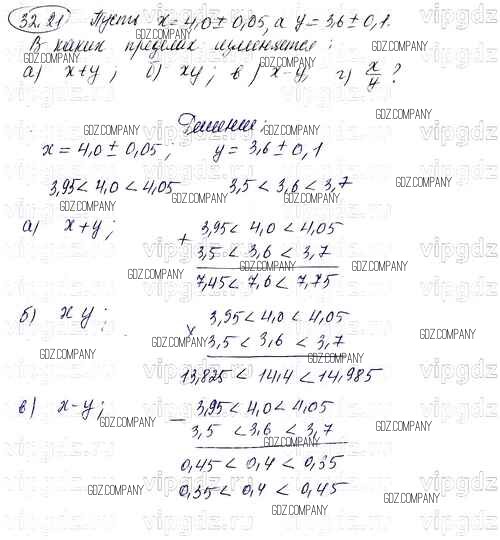 32.21 Пусть x = 4,0 ± 0,05, а y = 3,6 ± 0,1.
В каких пределах изменяется:
а) x+y; б) xy; в) x-y; г) x/y?
Решение:
x = 4,0 ± 0,05; y = 3,6 ± 0,1
3,95 < 4,0 < 4,05 3,5 < 3,6 < 3,7
а) x+y; + 3,95 < 4,0 < 4,05
3,5 < 3,6 < 3,7
7,45 < 7,6 < 7,75
б) xy; x 3,95 < 4,0 < 4,05
3,5 < 3,6 < 3,7
13,825 < 14,4 < 14,985
в) x-y; - 3,95 < 4,0 < 4,05
3,5 < 3,6 < 3,7
0,45 < 0,4 < 0,35
0,35 < 0,4 < 0,45
GDZ.COMPANY
vipgdz.ru